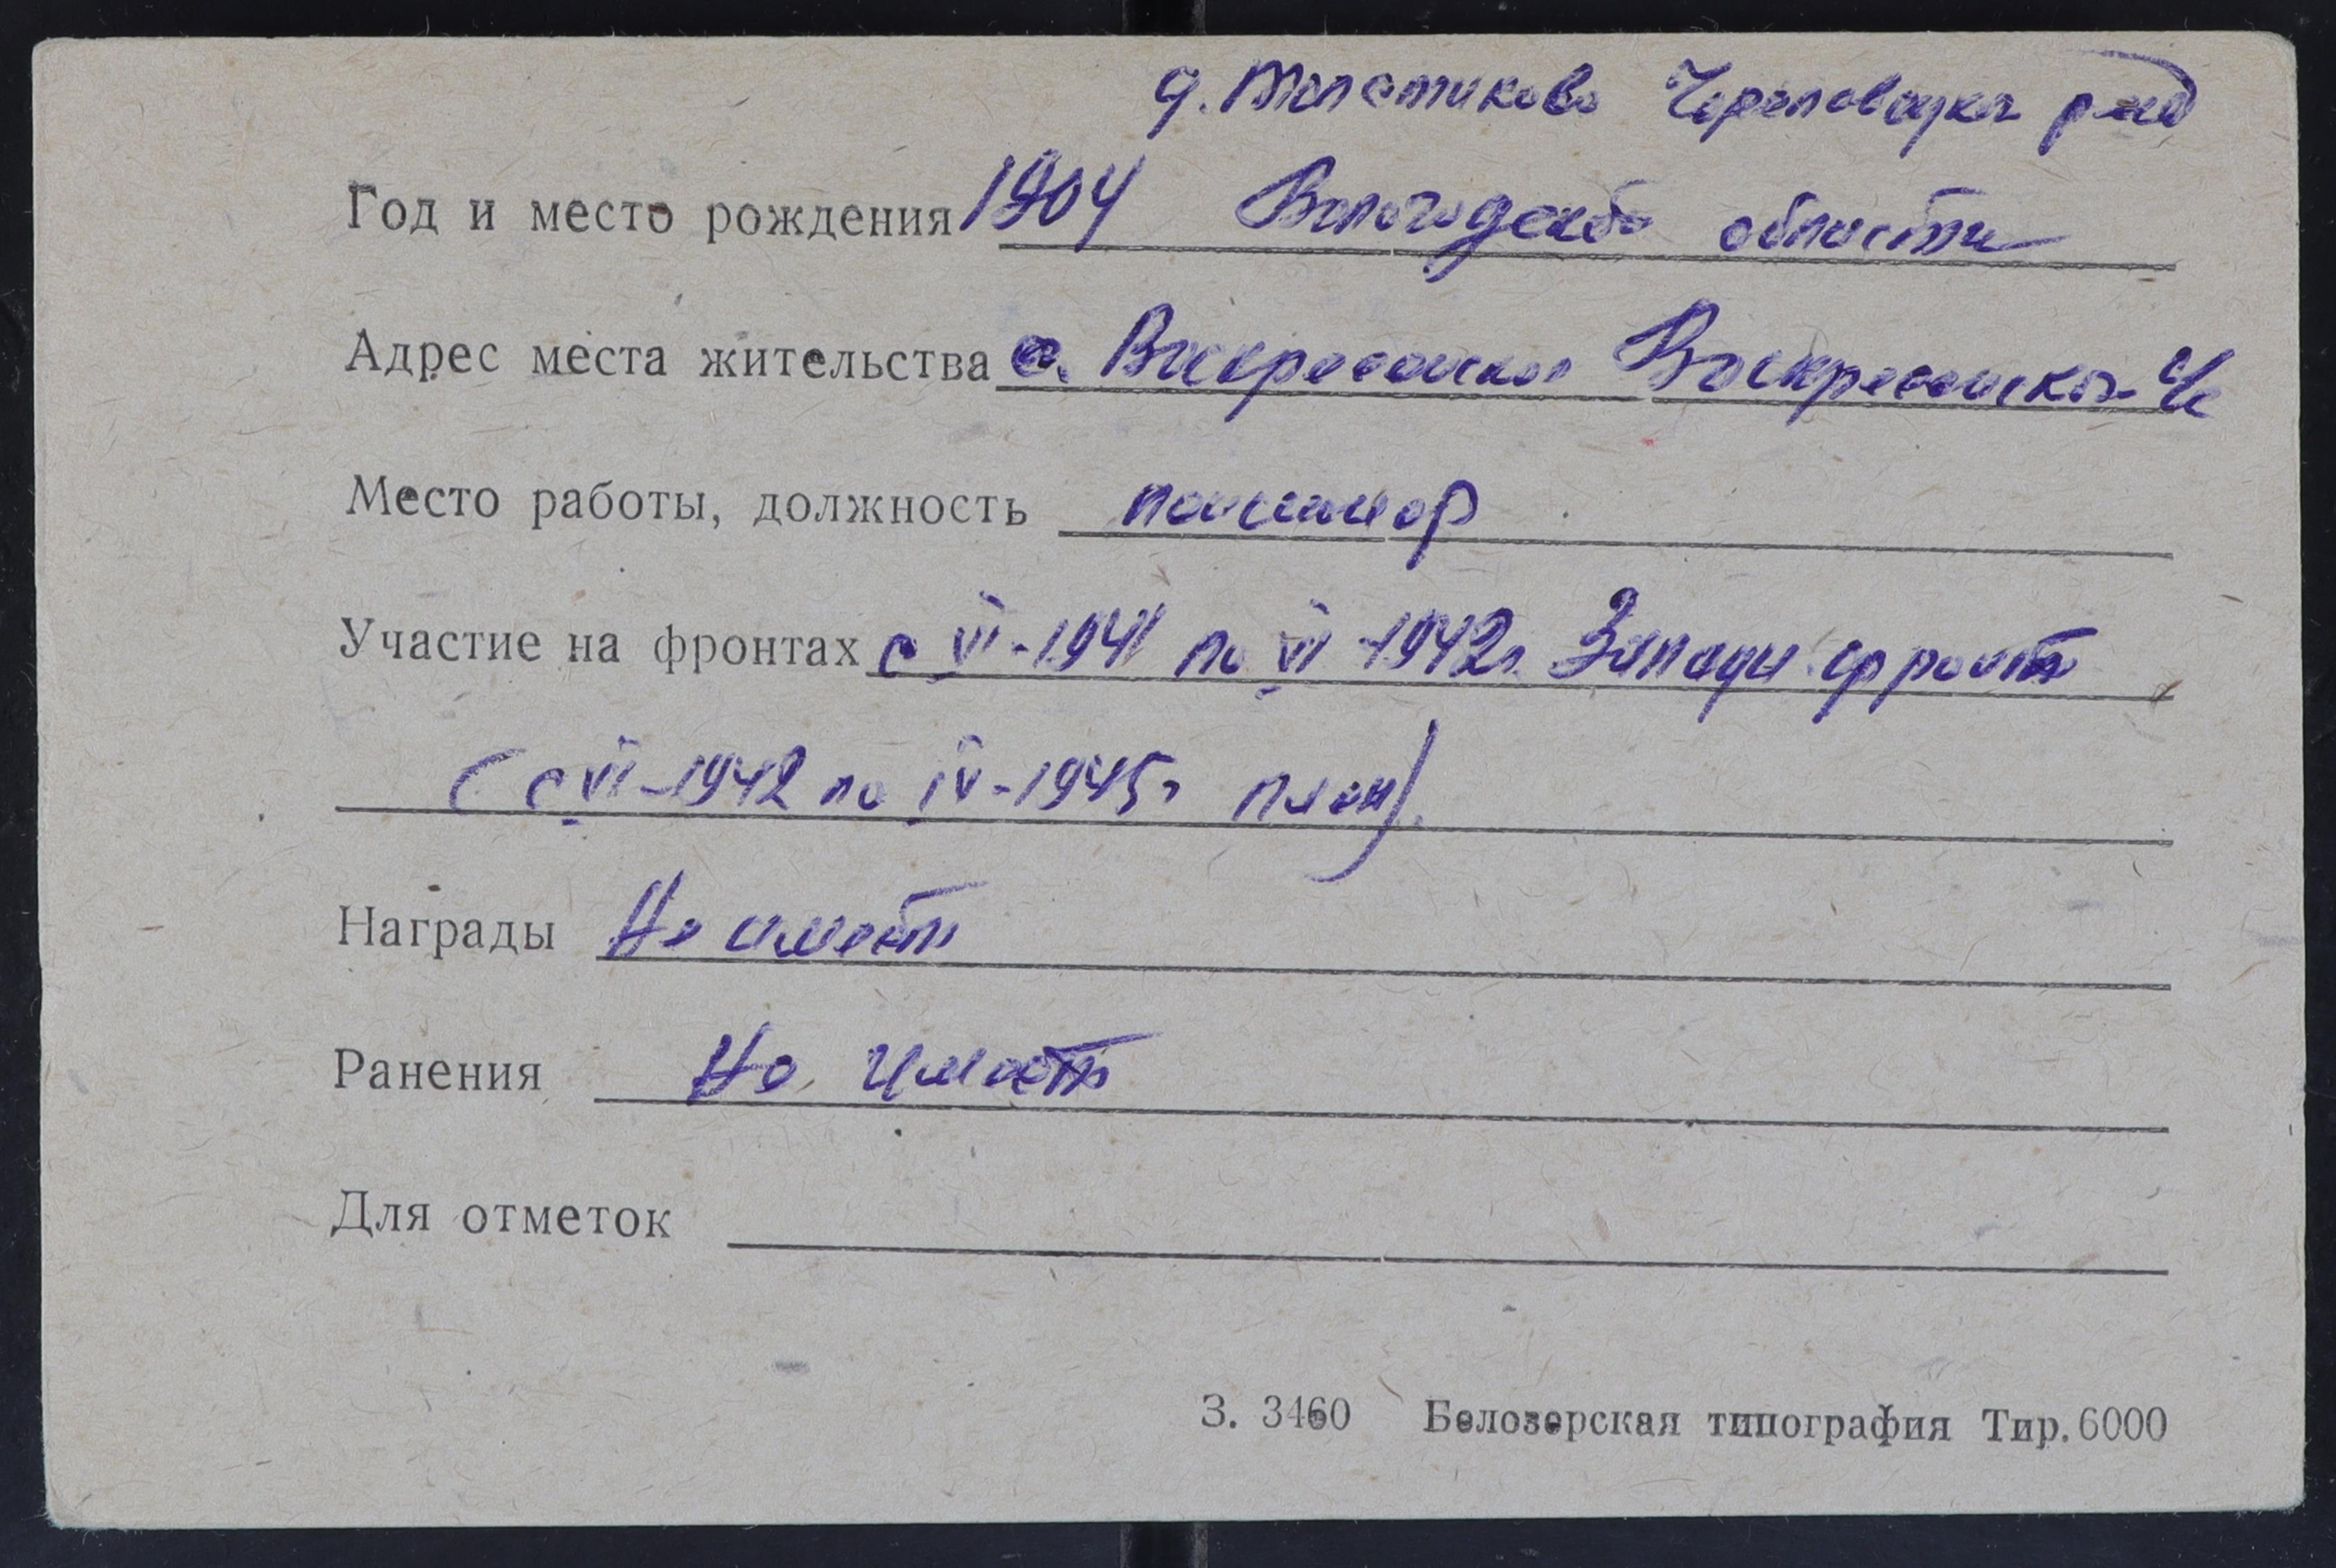 д. Толстиково Череповецкого р-на
Год и место рождения 1904 Вологодской области
Адрес места жительства с. Воскресенское Воскресенского с/с
Место работы, должность пенсионер
Участие на фронтах с VI-1941 по VI-1942г. Западн. фронт
(с VI-1942 по IV-1945г плен).
Награды Не имеет
Ранения Не имеет
Для отметок
З. 3460 Белозерская типография Тир. 6000